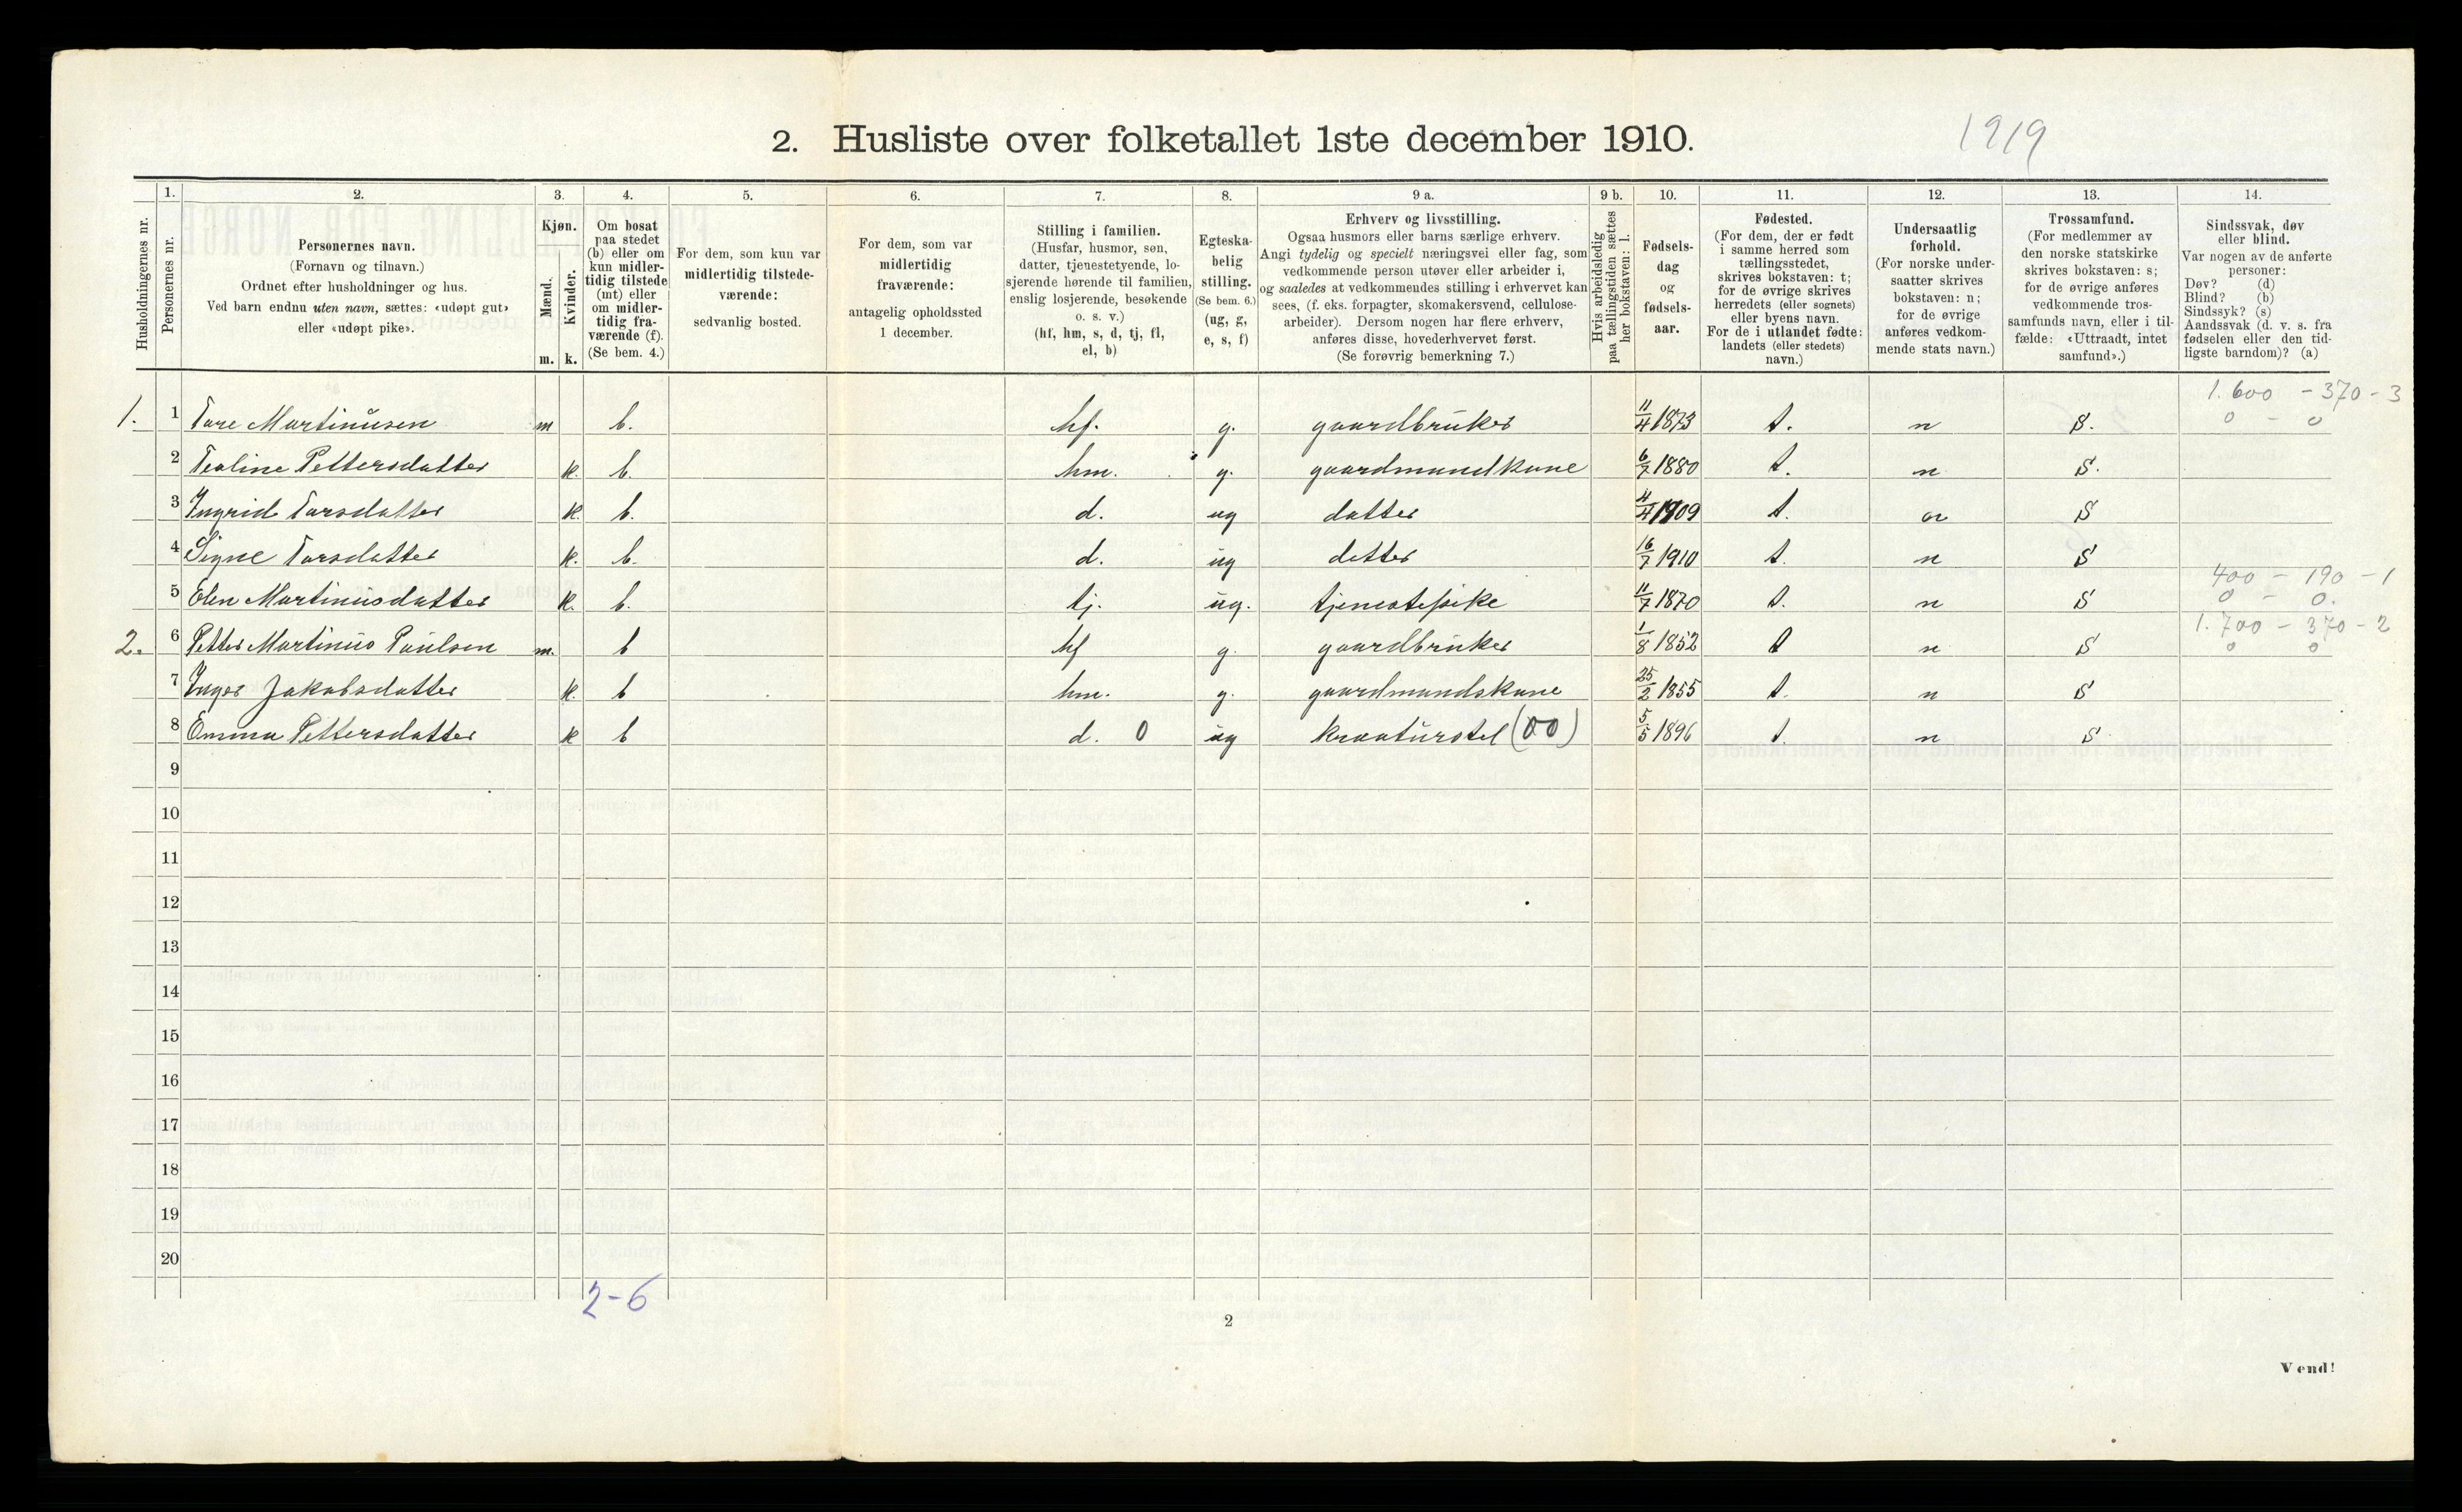 1919
2. Husliste over folketallet 1ste december 1910.
Husholdningernes nr.
1. Personernes nr.
2. Personernes navn.
(Fornavn og tilnavn.)
Ordnet efter husholdninger og hus.
Ved barn endnu uten navn, sættes: «udøpt gut»
eller «udøpt pike».
3. Kjøn.
Mænd. m.
Kvinder. k.
4. Om bosat
paa stedet
(b) eller om
kun midler-
tidig tilstede
(mt) eller
om midler-
tidig fra-
værende (f).
(Se bem. 4.)
5. For dem, som kun var
midlertidig tilstede-
værende:
sedvanlig bosted.
6. For dem, som var
midlertidig
fraværende:
antagelig opholdssted
1 december.
7. Stilling i familien.
(Husfar, husmor, søn,
datter, tjenestetyende, lo-
sjerende hørende til familien,
enslig losjerende, besøkende
o. s. v.)
(hf, hm, s, d, tj, fl,
el, b)
8. Egteska-
belig
stilling.
(Se bem. 6.)
(ug, g,
e, s, f)
9 a. Erhverv og livsstilling.
Ogsaa husmors eller barns særlige erhverv.
Angi tydelig og specielt næringsvei eller fag, som
vedkommende person utøver eller arbeider i,
og saaledes at vedkommendes stilling i erhvervet kan
sees, (f. eks. forpagter, skomakersvend, cellulose-
arbeider). Dersom nogen har flere erhverv,
anføres disse, hovederhvervet først.
(Se forøvrig bemerkning 7.)
9 b. Hvis arbeidsledig
paa tællingstiden sættes
her bokstaven: l.
10. Fødsels-
dag
og
fødsels-
aar.
11. Fødested.
(For dem, der er født
i samme herred som
tællingsstedet,
skrives bokstaven: t;
for de øvrige skrives
herredets (eller sognets)
eller byens navn.
For de i utlandet fødte:
landets (eller stedets)
navn.)
12. Undersaatlig
forhold.
(For norske under-
saatter skrives
bokstaven: n;
for de øvrige
anføres vedkom-
mende stats navn.)
13. Trossamfund.
(For medlemmer av
den norske statskirke
skrives bokstaven: s;
for de øvrige anføres
vedkommende tros-
samfunds navn, eller i til-
fælde: «Uttraadt, intet
samfund».)
14. Sindssvak, døv
eller blind.
Var nogen av de anførte
personer:
Døv? (d)
Blind? (b)
Sindssyk? (s)
Aandssvak (d. v. s. fra
fødselen eller den tid-
ligste barndom)? (a)
1. 1 Tore Martinusen m b. hf. g. gaardbruker 11/4 1873 t. n S. 1.600 - 370 - 3
0 - 0
2 Tealine Pettersdatter k. b. hm. g. gaardmandkone 6/7 1880 t. n S.
3 Ingrid Torsdatter k. b. d. ug datter 4/4 1909 t. n S
4 Signe Torsdatter k. b. d. ug detter 16/7 1910 t. n S
5 Olen Martinusdatter k. b. tj. ug. tjenestepike 11/7 1870 t. n S 400 - 190 - 1
0 - 0.
2. 6 Petter Martinus Paulsen m. b hf g. gaardbruker 1/8 1852 t n S 1.700 - 370 - 2
0 0
7 Inger Jakobsdatter k. b hm. g. gaardmandskone 25/2 1855 t. n S
8 Emma Pettersdatter k b d. 0 ug kreaturstel (00) 5/5 1896 t. n S
9
10
11
12
13
14
15
16
17
18
19
20
2-6
2
Vend!